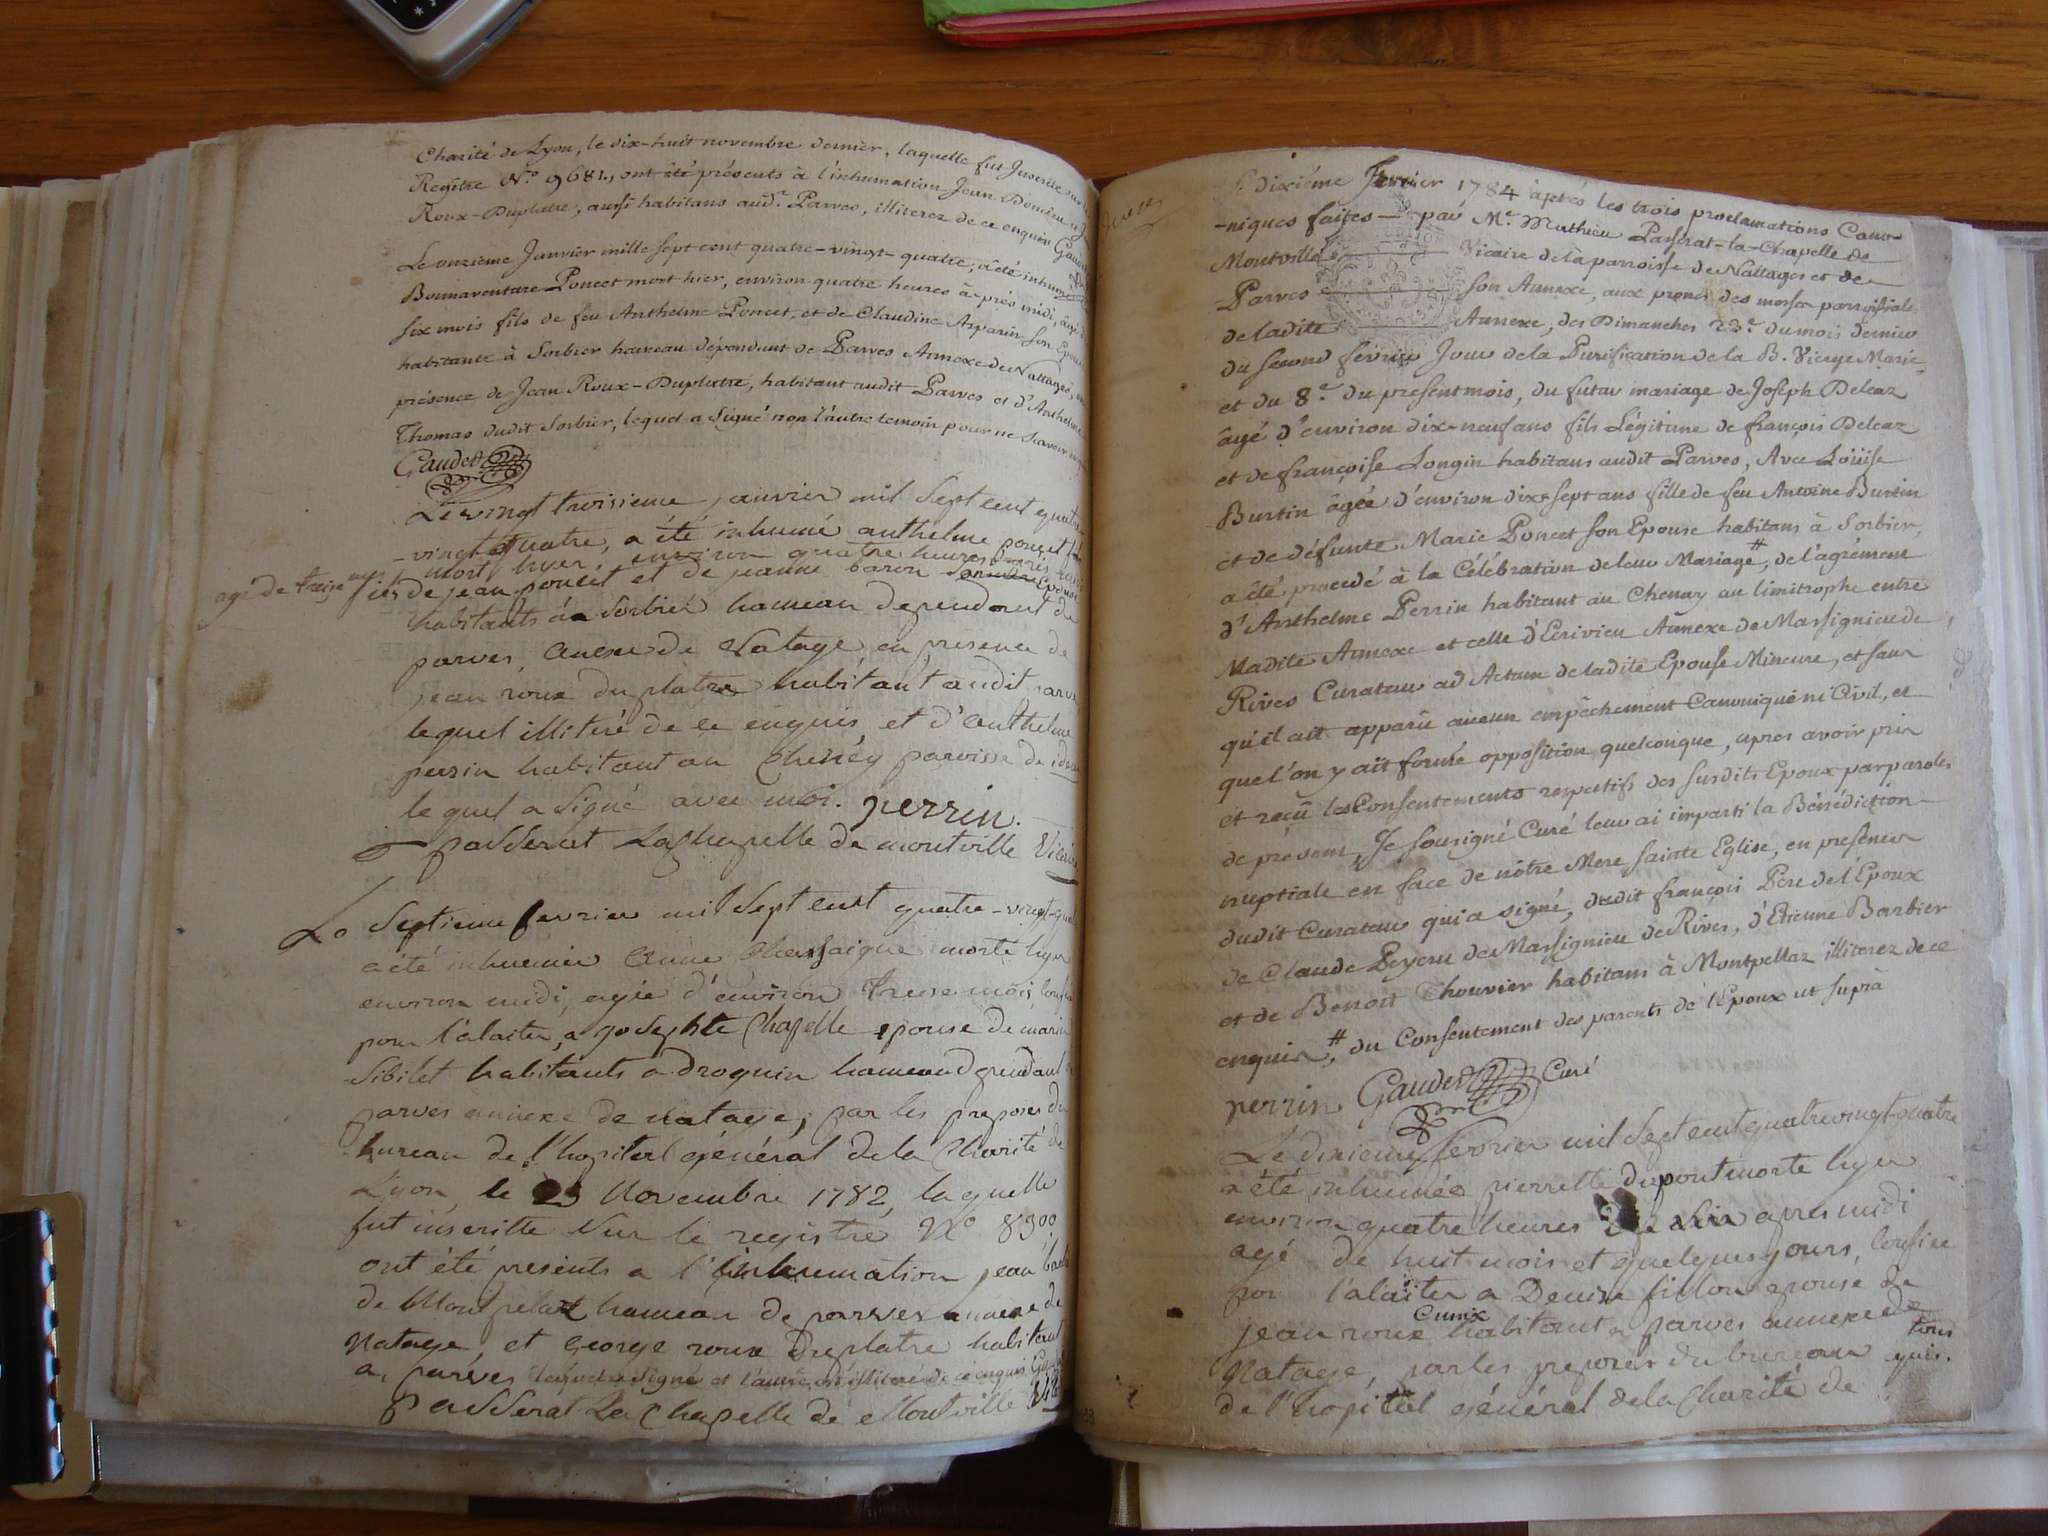 Charité de Lyon, le dix-huit novembre dernier, laquelle fut Inscrite sur le
Regître N.o 9681., ont été présents à l'inhumation Jean
Roux-Duplatre, aussi habitans aud.t Parves, illiterez de ce enquis Gaudet
Le onzieme Janvier mille sept cent quatre-vingt-quatre, a été inhumé
Bonnaventure Poncet mort hier, environ quatre heures après midi, âgé de
six mois fils de feu Anthelme Poncet, et de Claudine Asparin son Epouse
habitante à Sorbier hameau dépendant de Parves Annexe de Nattages, en
présence de Jean Roux-Duplatre, habitant audit Parves et d'Anthelme
Thomas dudit Sorbier, lequel a signé non l'autre temoin pour ne scavoir
Gaudet
Le vingt troisieme janvier mil sept cent quatre
-vingt quatre, a été inhumé anthelme poncet
mort hyer, environ quatre heures après
agé de treize mois fils de jean poncet et de jeanne baron son Epouse
habitants a Sorbier hameau dependant de
parves, annexe de Natage en presence de
jean roux du platre habitant audit parves
lequel illitéré de ce enquis et d'anthelme
perrin habitant au Cheney paroisse de
lequel a signé avec moi. perrin.
passerat La Chapelle de montville Vicaire
Le Septieme fevrier mil sept cent quatre-vingt-quatre
a été inhumée Anne Chassaigne morte hyer
environ midi, agée d'environ treize mois,
pour l'alaiter, a josephte Chapelle epouse de marin
Sibilet habitants a Droguin hameau dependant
parves annexe de natage, par les preposés du
bureau de l'hopital général de la Charité de
Lyon, le 23 Novembre 1782, laquelle
fut inscritte sur le registre N.o 8300
ont été présents a l'inhumation jean
de Montpelat hameau de parves annexe de
Natage, et George roux duplatre habitant
a parves lequel a signé et l'autre illiteré de ce enquis
passerat La Chapelle de Montville
Le dixiéme Fevrier 1784 après les trois proclamations Cano-
-niques faites par M.e Mathieu Passerat-la-Chapelle de
Montville Vicaire de la parroisse de Nattages et de
Parves son Annexe, aux prones des messes parroissiales
de ladite Annexe, des Dimanches 25.e du mois dernier
du second fevrier Jour de la Purification de la B. Vierge Marie,
et du 8.e du present mois, du futur mariage de Joseph Delcaz
âgé d'environ dix-neuf ans fils Légitime de françois Delcaz
et de françoise Longin habitans audit Parves, Avec Loüise
Burtin âgée d'environ dix-sept ans fille de feu Antoine Burtin
et de défunte Marie Poncet son Epouse habitans à Sorbier,
a été procedé à la Célébration de leur Mariage #, de l'agrément
d'Anthelme Perrin habitant au Chenay au limitrophe entre
ladite Annexe et celle d'Ecrivieu Annexe de Massignieu de
Rives Curateur ad Actum de ladite Epouse Mineure, et sans
qu'il ait apparü aucun empêchement Canonique ni Civil, et
que l'on y ait formé opposition quelconque, apres avoir pris
et reçü les Consentements respectifs des susdits Epoux par paroles
de présent, Je soussigné Curé leur ai imparti la Bénédiction
nuptiale en face de nôtre Mere Sainte Eglise, en presence
dudit Curateur qui a signé, dudit françois Pere de l'Epoux
de Claude Peysru de Massignieu de Rives, d'Etienne Barbier
et de Benoit Thouvier habitans à Montpellaz illiterez de ce
enquis, # du Consentement des parents de l'Epoux ut supra
perrin Gaudet Curé
Le dixieme fevrier mil sept cent quatre vingt-quatre
a été inhumée pierrette dupont morte hyer
environ quatre heures après midi
agé de huit mois et quelques jours, confiée
por l'alaiter a Denise fillon epouse de
jean roux Cunix habitant a parves annexe de
Natage, par les preposés du bureau
de l'hopital général de la Charité de